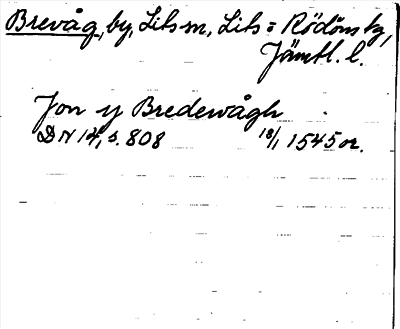 Brevåg, by, Lits sn, Lits o Rödöns tg,
Jämtl. l.
Jon y Bredewågh
DN 14, s. 808 18/1 1545 or.